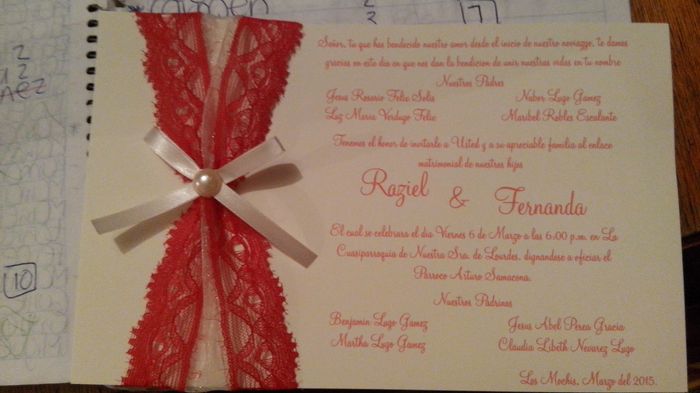 2
2
7
2
2
AEZ
10
Señor, tu que has bendecido nuestro amor desde el inicio de nuestro noviazgo, te damos
gracias en este dia en que nos dan la bendicion de unir nuestras vidas en tu nombre
Nuestros Padres
Jesus Rosario Felix Solis Nabor Lugo Gamez
Luz Maria Verdugo Felix Maribel Robles Escalante
Tenemos el honor de invitarle a Usted y a su apreciable familia al enlace
matrimonial de nuestros hijos
Raziel & Fernanda
El cual se celebrara el dia Viernes 6 de Marzo a las 6:00 p.m. en La
Cuasiparroquia de Nuestra Sra. de Lourdes, dignandose a oficiar el
Parroco Arturo Samacona.
Nuestros Padrinos
Benjamin Lugo Gamez Jesus Abel Perea Gracia
Martha Lugo Gamez Claudia Libeth Nevarez Lugo
Los Mochis, Marzo del 2015.